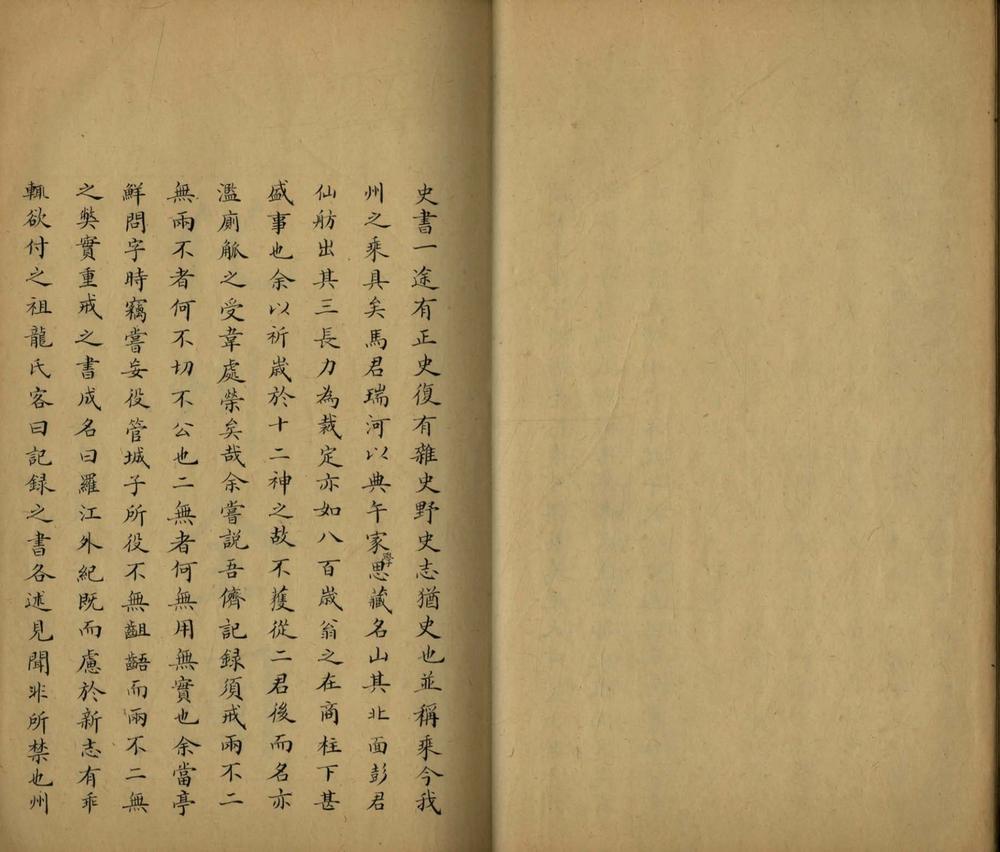 史書一途有正史復有雜史野史志猶史也並稱乘今我
州之乘具矣馬君瑞河以典午家學思藏名山其北面彭君
仙舫出其三長力為裁定亦如八百歲翁之在商柱下甚
盛事也余以祈歲於十二神之故不獲從二君後而名亦
濫廁觚之受韋處榮矣哉余嘗説吾儕記録須戒兩不二
無兩不者何不切不公也二無者何無用無實也余當亭
鮮問字時竊嘗妄役管城子所役不無齟齬而兩不二無
之獘實重戒之書成名曰羅江外紀既而慮於新志有乖
輒欲付之祖龍氏客曰記録之書各述見聞非所禁也州